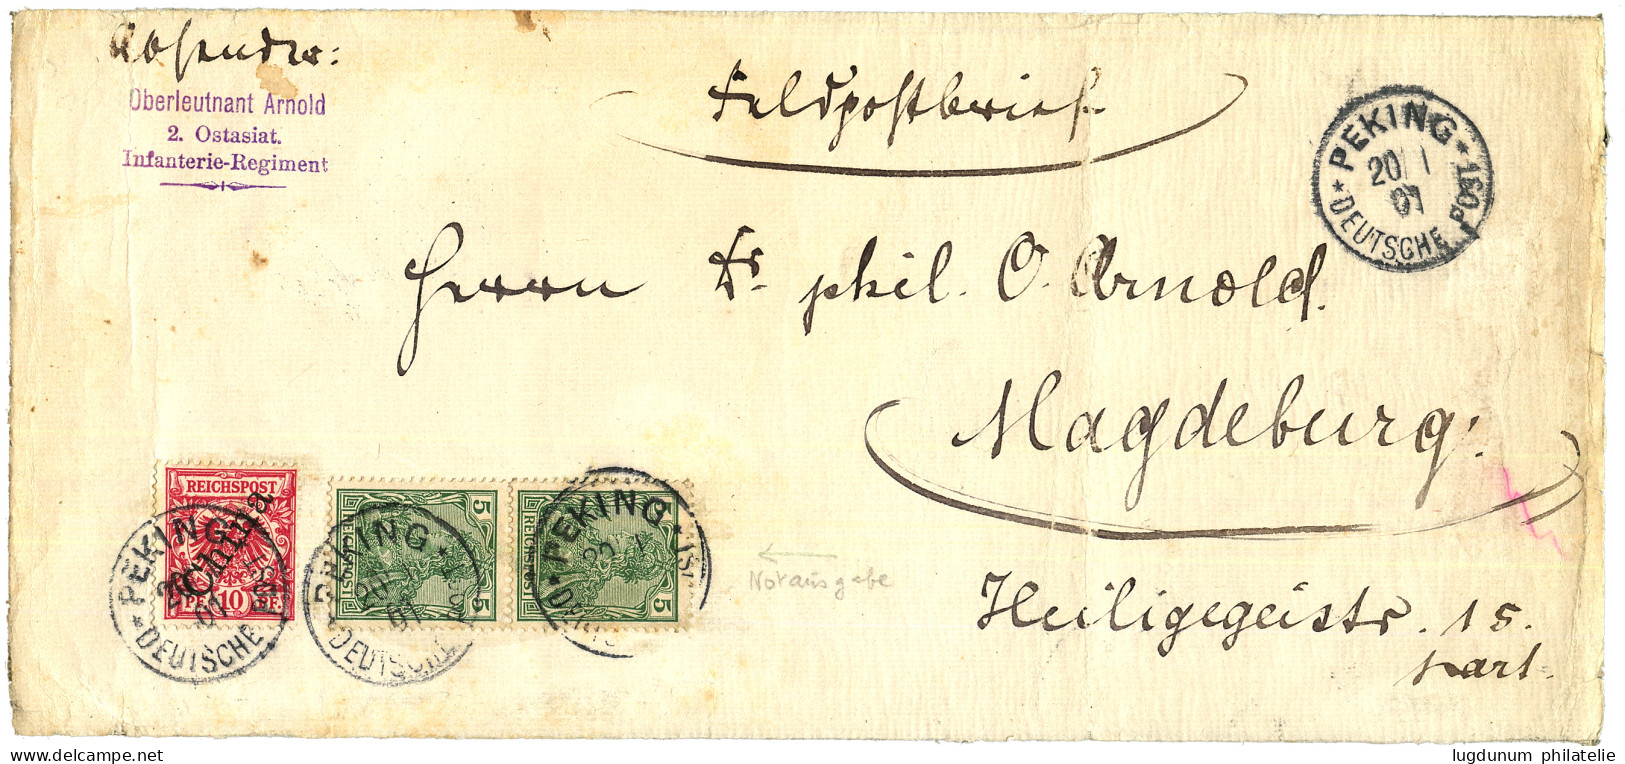 Absender:
Oberleutnant Arnold
2. Ostasiat.
Infanterie-Regiment
Feldpostbrief
PEKING
20/1
01
DEUTSCHE POST
Herrn Dr. phil. O. Arnold.
Magdeburg.
Heiligegeiststr. 15.
part.
REICHSPOST
China
PF. 10 PF.
PEKING
20/1
01
DEUTSCHE POST
5
REICHSPOST
5
PEKING
20/1
01
DEUTSCHE
5
REICHSPOST
5
PEKING
20/1
Notausgabe
www.delcampe.net
lugdunum philatelie